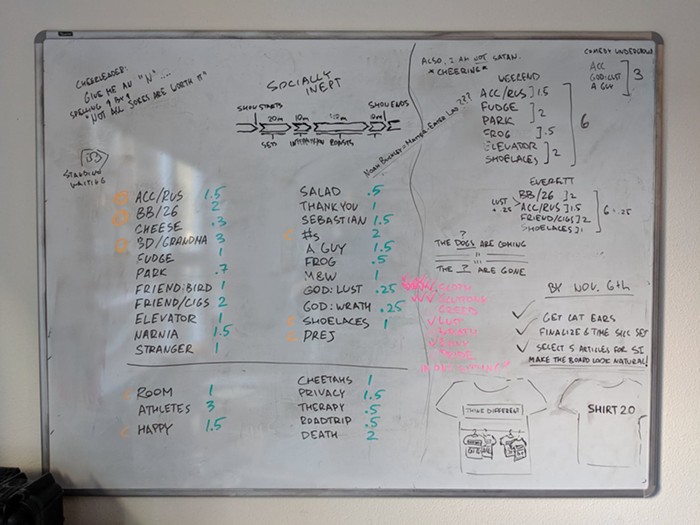 CHEERLEADER:
GIVE ME AN "N"....
SPELLING
"NOT ALL JOKES ARE WORTH IT"
STANDING
WAITING
SOCIALLY
INEPT
SHOW STARTS
SHOW ENDS
20m
10m
SETS
INTERMISSION
ROASTS
ACC/RUS 1.5
BB/26 2
CHEESE .3
3D/GRANDMA 3
FUDGE 1
PARK .7
FRIEND:BIRD 1
FRIEND/CIGS 2
ELEVATOR 1
NARNIA 1.5
STRANGER 1
SALAD .5
THANK YOU 1
SEBASTIAN 1.5
#s 2
A GUY 1.5
FROG .5
M&W 1
GOD: LUST .25
GOD: WRATH .25
SHOELACES 1
PREJ
ROOM 1
ATHLETES 3
HAPPY 1.5
CHEETAHS 1
PRIVACY 1.5
THERAPY .5
ROADTRIP .5
DEATH 2
ALSO, I AM NOT SATAN.
*CHEERING*
COMEDY UNDERGROUND
ACC
GOD:LUST
A GUY
3
WEEKEND
ACC/RUS 1.5
FUDGE
PARK 2
FROG .5
ELEVATOR
SHOELACES 2
6
EVERETT
BB/26 2
LUST .25
ACC/RUS 1.5
FRIEND/CIGS 2
SHOELACES 1
6.25
?
THE DOGS ARE COMING
THE ? ARE GONE
SLOTH
GLUTTONY
GREED
LUST
BY NOV. 6th
GET CAT EARS
FINALIZE & TIME SLCC SET
SELECT 5 ARTICLES FOR SI
MAKE THE BOARD LOOK NATURAL!
THINK DIFFERENT
SHIRT 2.0